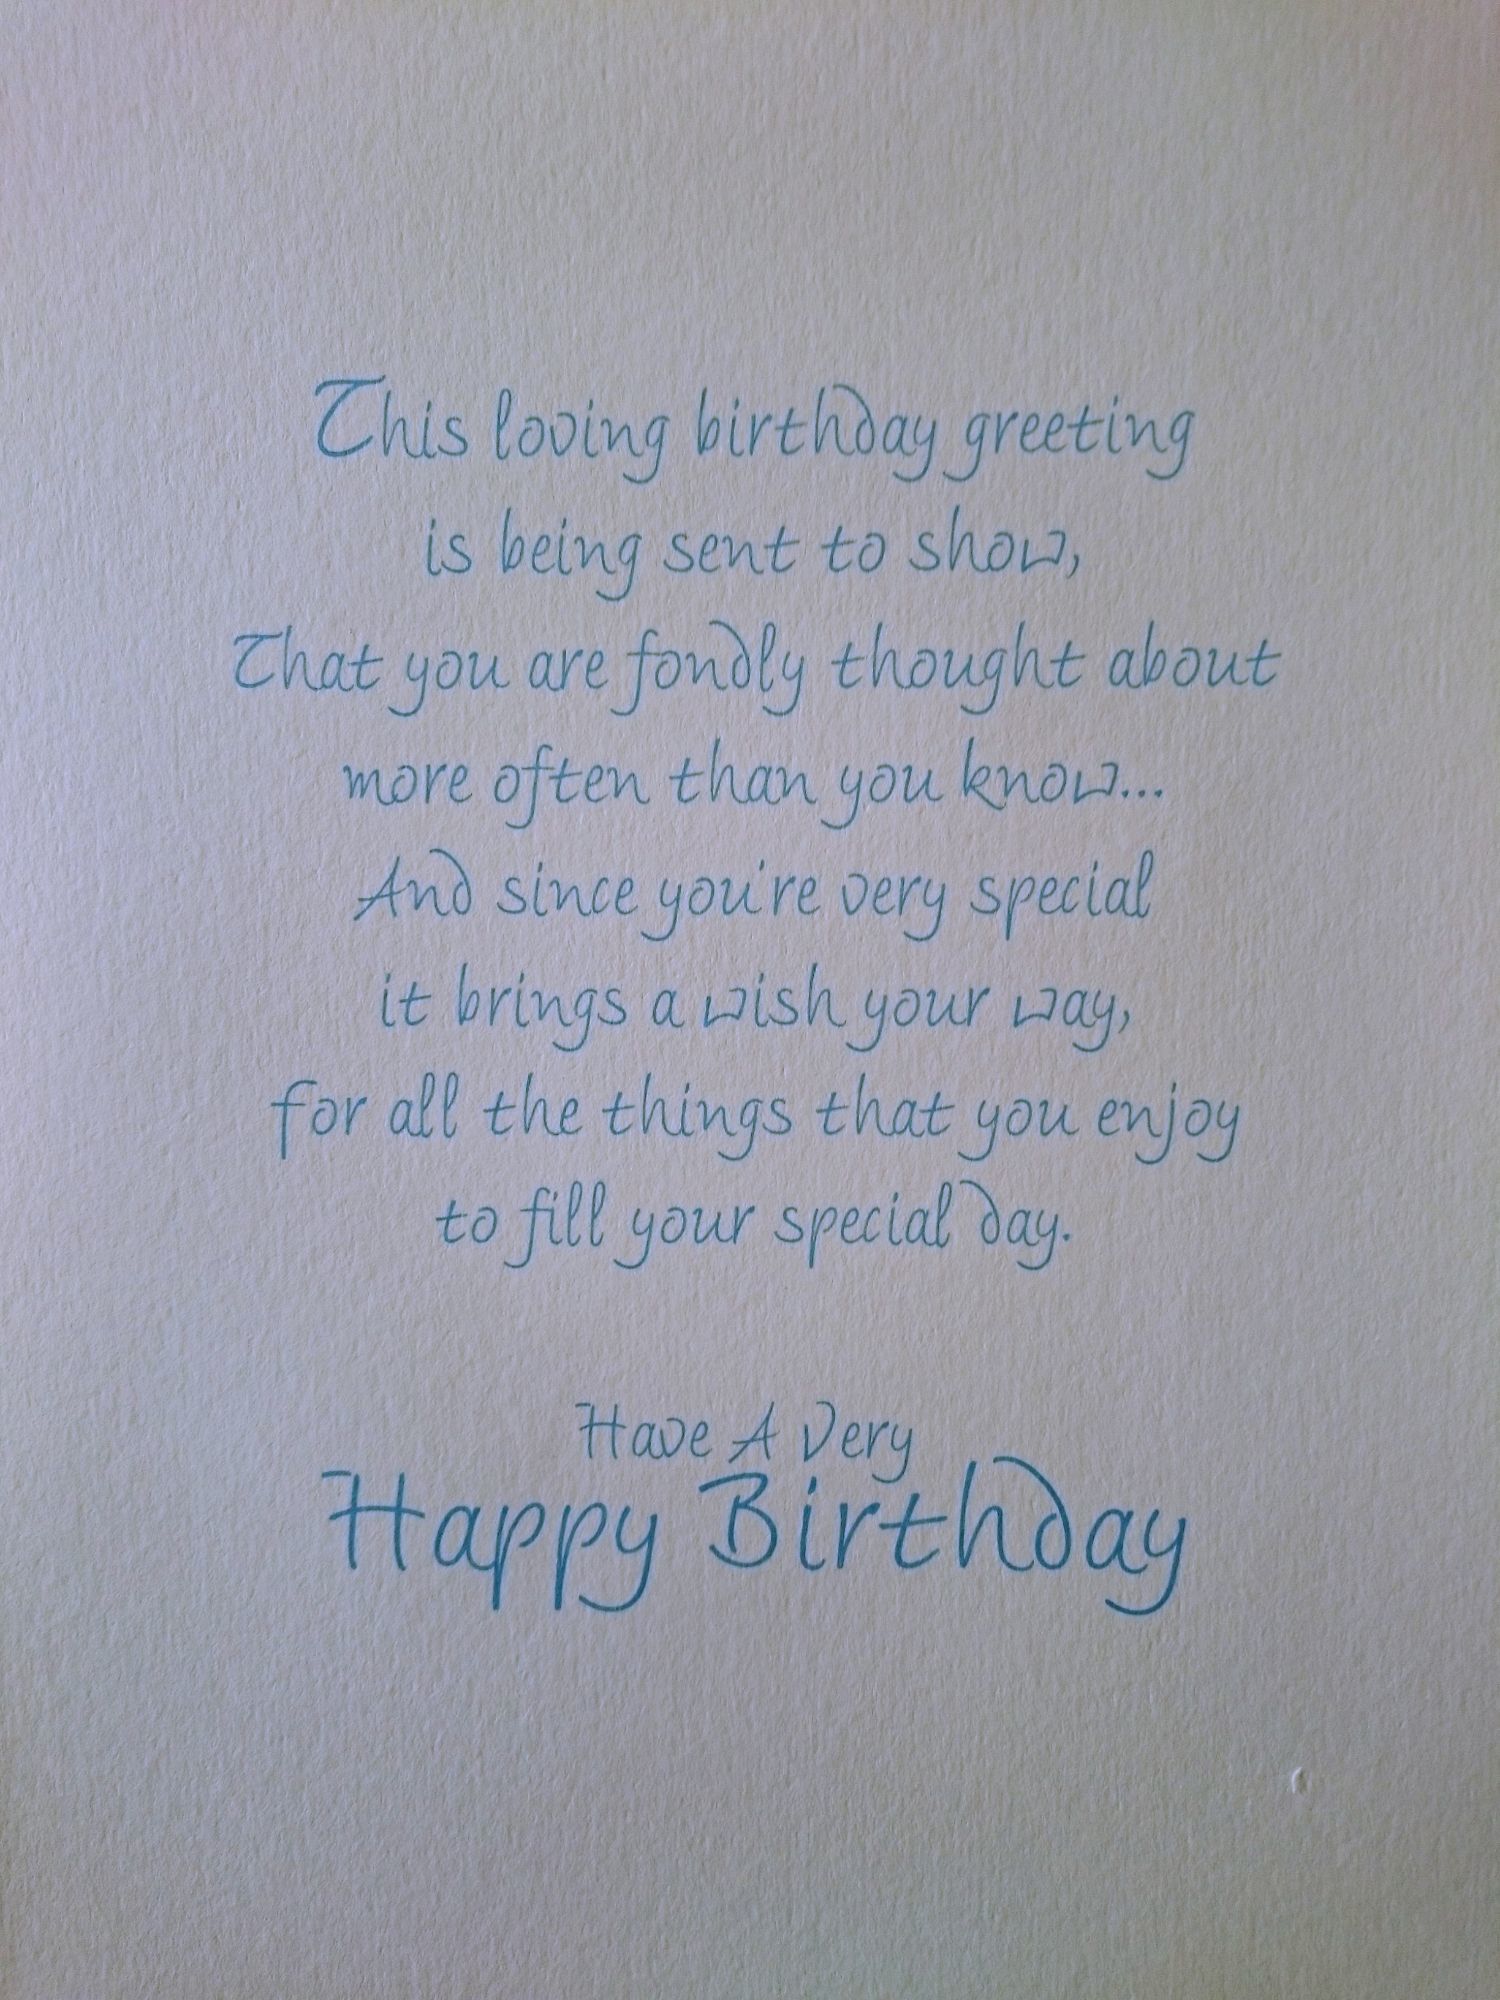 This loving birthday greeting
is being sent to show,
That you are fondly thought about
more often than you know...
And since you're very special
it brings a wish your way,
for all the things that you enjoy
to fill your special day.
Have A Very
Happy Birthday